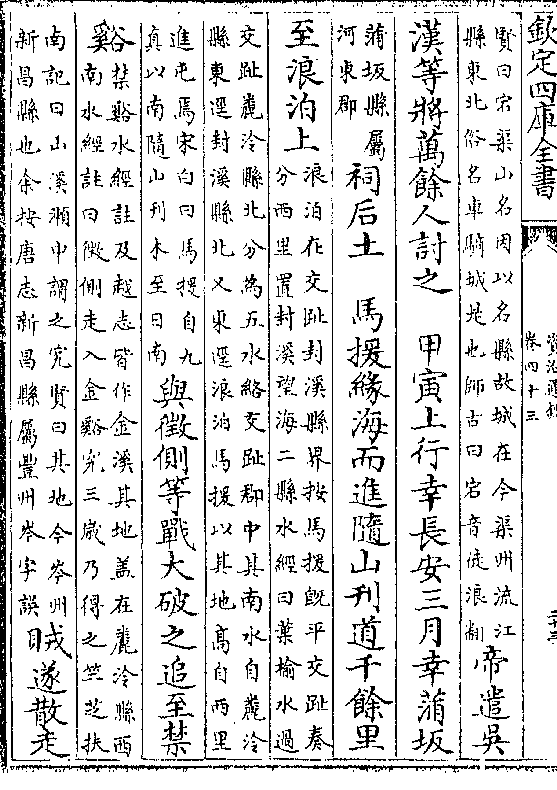 欽定四庫全書
資治通鑑
卷四十三
賢曰宕渠山名因以名縣故城在今渠州流江
縣東北俗名車騎城是也師古曰宕音徒浪翻
帝遣吳
漢等將萬餘人討之　甲寅上行幸長安三月幸蒲坂
蒲坂縣屬
河東郡
祠后土　馬援緣海而進隨山刋道千餘里
至浪泊上
浪泊在交趾封溪縣界按馬援旣平交趾奏
分西里置封溪望海二縣水經曰葉榆水過
交趾麊泠縣北分為五水絡交趾郡中其南水自麊泠
縣東逕封溪縣北又東逕浪泊馬援以其地髙自西里
進屯焉宋白曰馬援自九
真以南隨山刋木至日南
與徵側等戰大破之追至禁
谿
谷禁谿水經註及越志皆作金溪其地蓋在麊泠縣西
南水經註曰徵側走入金谿究三歲乃得之竺芝扶
南記曰山溪瀨中謂之究賢曰其地今岑州
新昌縣也余按唐志新昌縣屬豐州岑字誤
賊遂散走